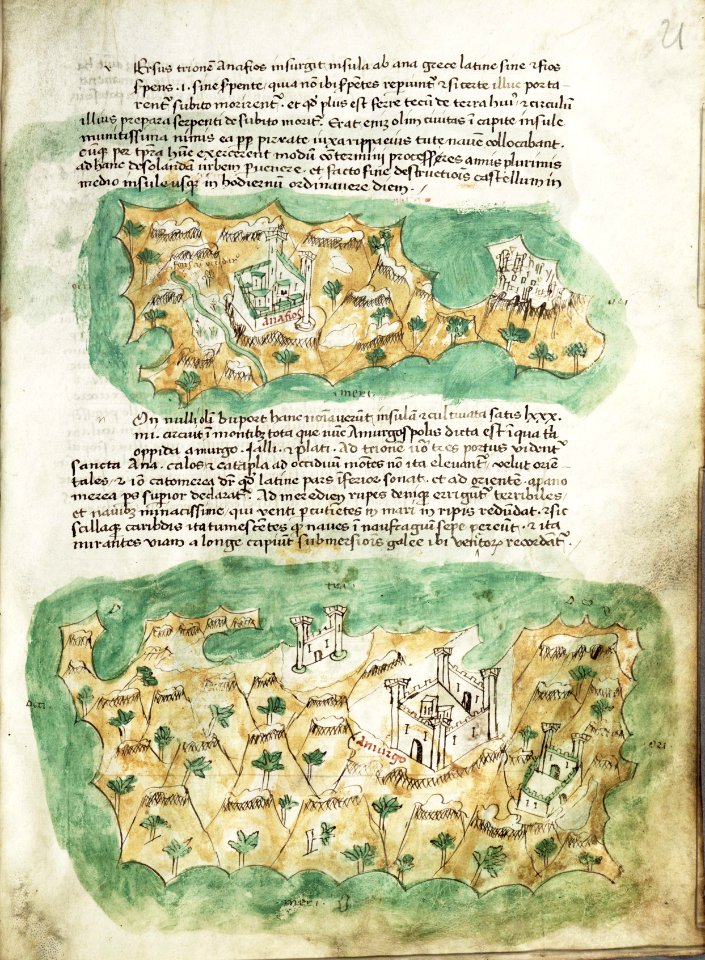 21
Ersus trionem Anafios insurgit insula ab ana grece latine sine & fios
spens .i. sine spente, quia non ibi spentes repiunt & si certe illuc porta
rent subito morirent. et qd plus est ferre tecum de terra hui & circulum
illius prepara serpenti de subito morit. Erat enim olim civitas in capite insule
munitissima nimis ea pp pirrate iuxta ripas eius tute navem collocabant.
cumq per tpra hunc exercerent modum contermini processores annis plurimis
ad hanc desolandam urbem pvenere. et facto fine destructiois castellum in
medio insule usq in hodiernum ordinavere diem.
anafios
ori
meri
On nulli olim buport hanc noiaverunt insulam & cultivata satis lxxx.
mi. circuit i montibz tota que nunc Amurgospolis dicta est i qua tria
oppida amurgo. Ialli. & plati. Ad trione no tres portus vident
sancta Ana. calos. & catapla ad occidum montes non ita elevant velut orien
tales. & io catomerea dr qd latine pars inferior sonat. et ad oriente apano
merea ps supior declarat. Ad meredien rupes deniq errigunt terribiles
et navibz minacissime, qui venti pcutietes in mari in ripis redundat. & sic
scillaq caribdis ita tumescentes q naves in naufragium sepe pereunt. & ita
mirantes viam a longe capiunt submersiois galee ibi venetorum recordant.
tra
occi
ori
amurgo
meri